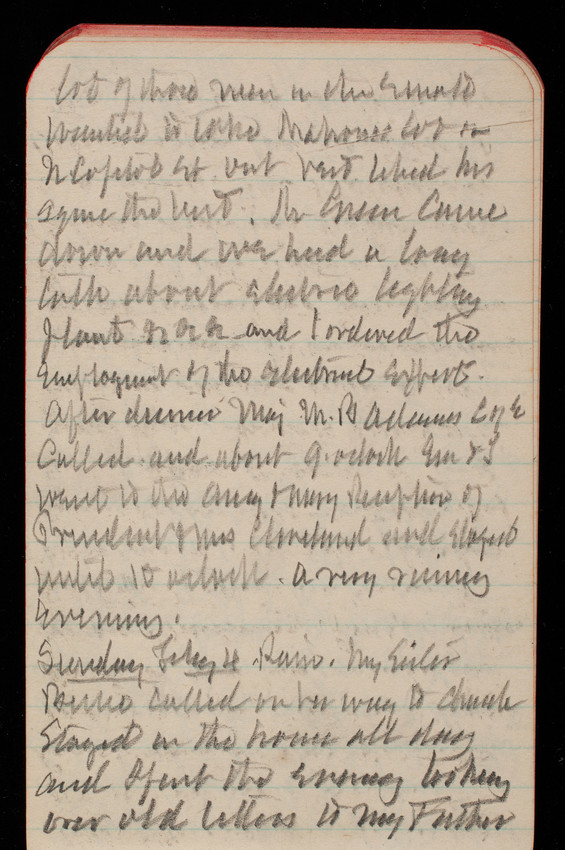 lot of those men in the Senate
wanted to take Mahones lot on
N Capitol St. but Vest licked his
the best. Mr Green Came
down and we had a long
talk about electric lighting
plant &c &c &c and I ordered the
employment of the electrical expert.
After dinner Maj M. B Adams C of E
Called. and about 9. oclock Em & I
went to the Army & Navy Reception of
President & Mrs Cleveland and stayed
until 10 oclock. a very rainy
Evening.
Sunday Feby 4. Rain. My Sister
called on her way to church
Stayed in the house all day
and Spent the evening looking
over old letters to my Father